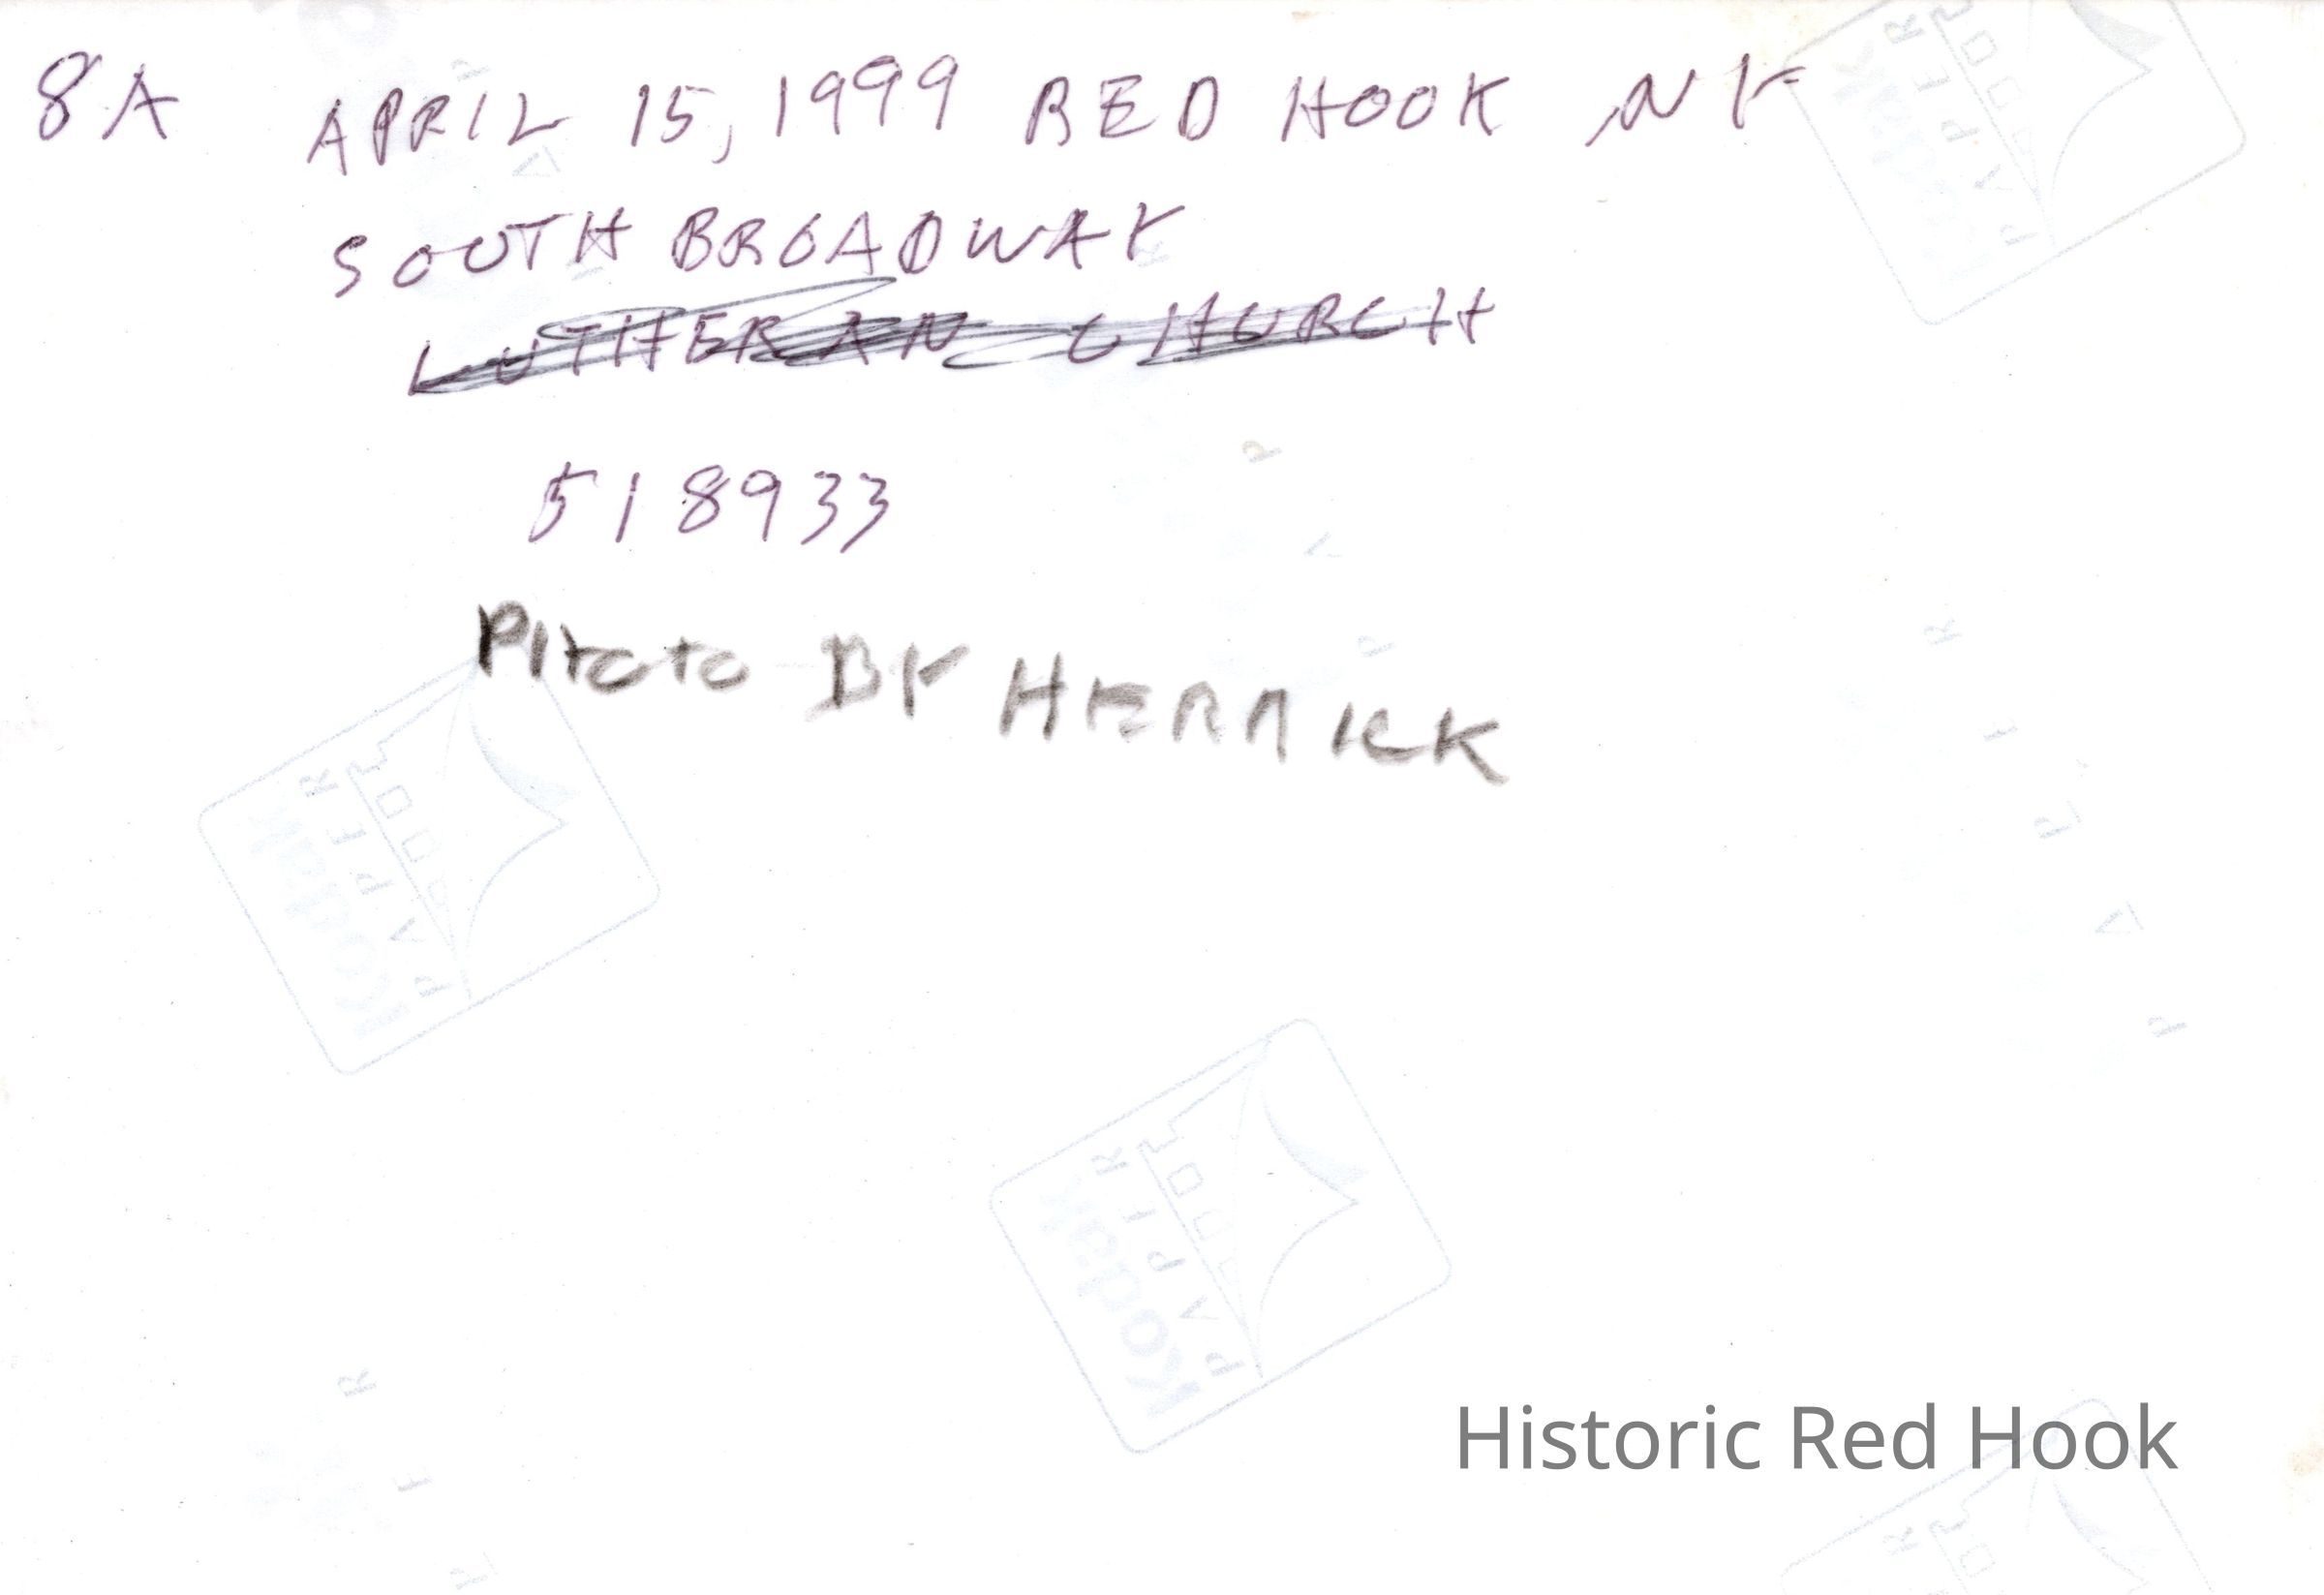 8A APRIL 15, 1999 RED HOOK NY
SOUTH BROADWAY
LUTHERAN CHURCH
518933
PHOTO BY HERRICK
Kodak
PAPER
Kodak
PAPER
Kodak
PAPER
Historic Red Hook